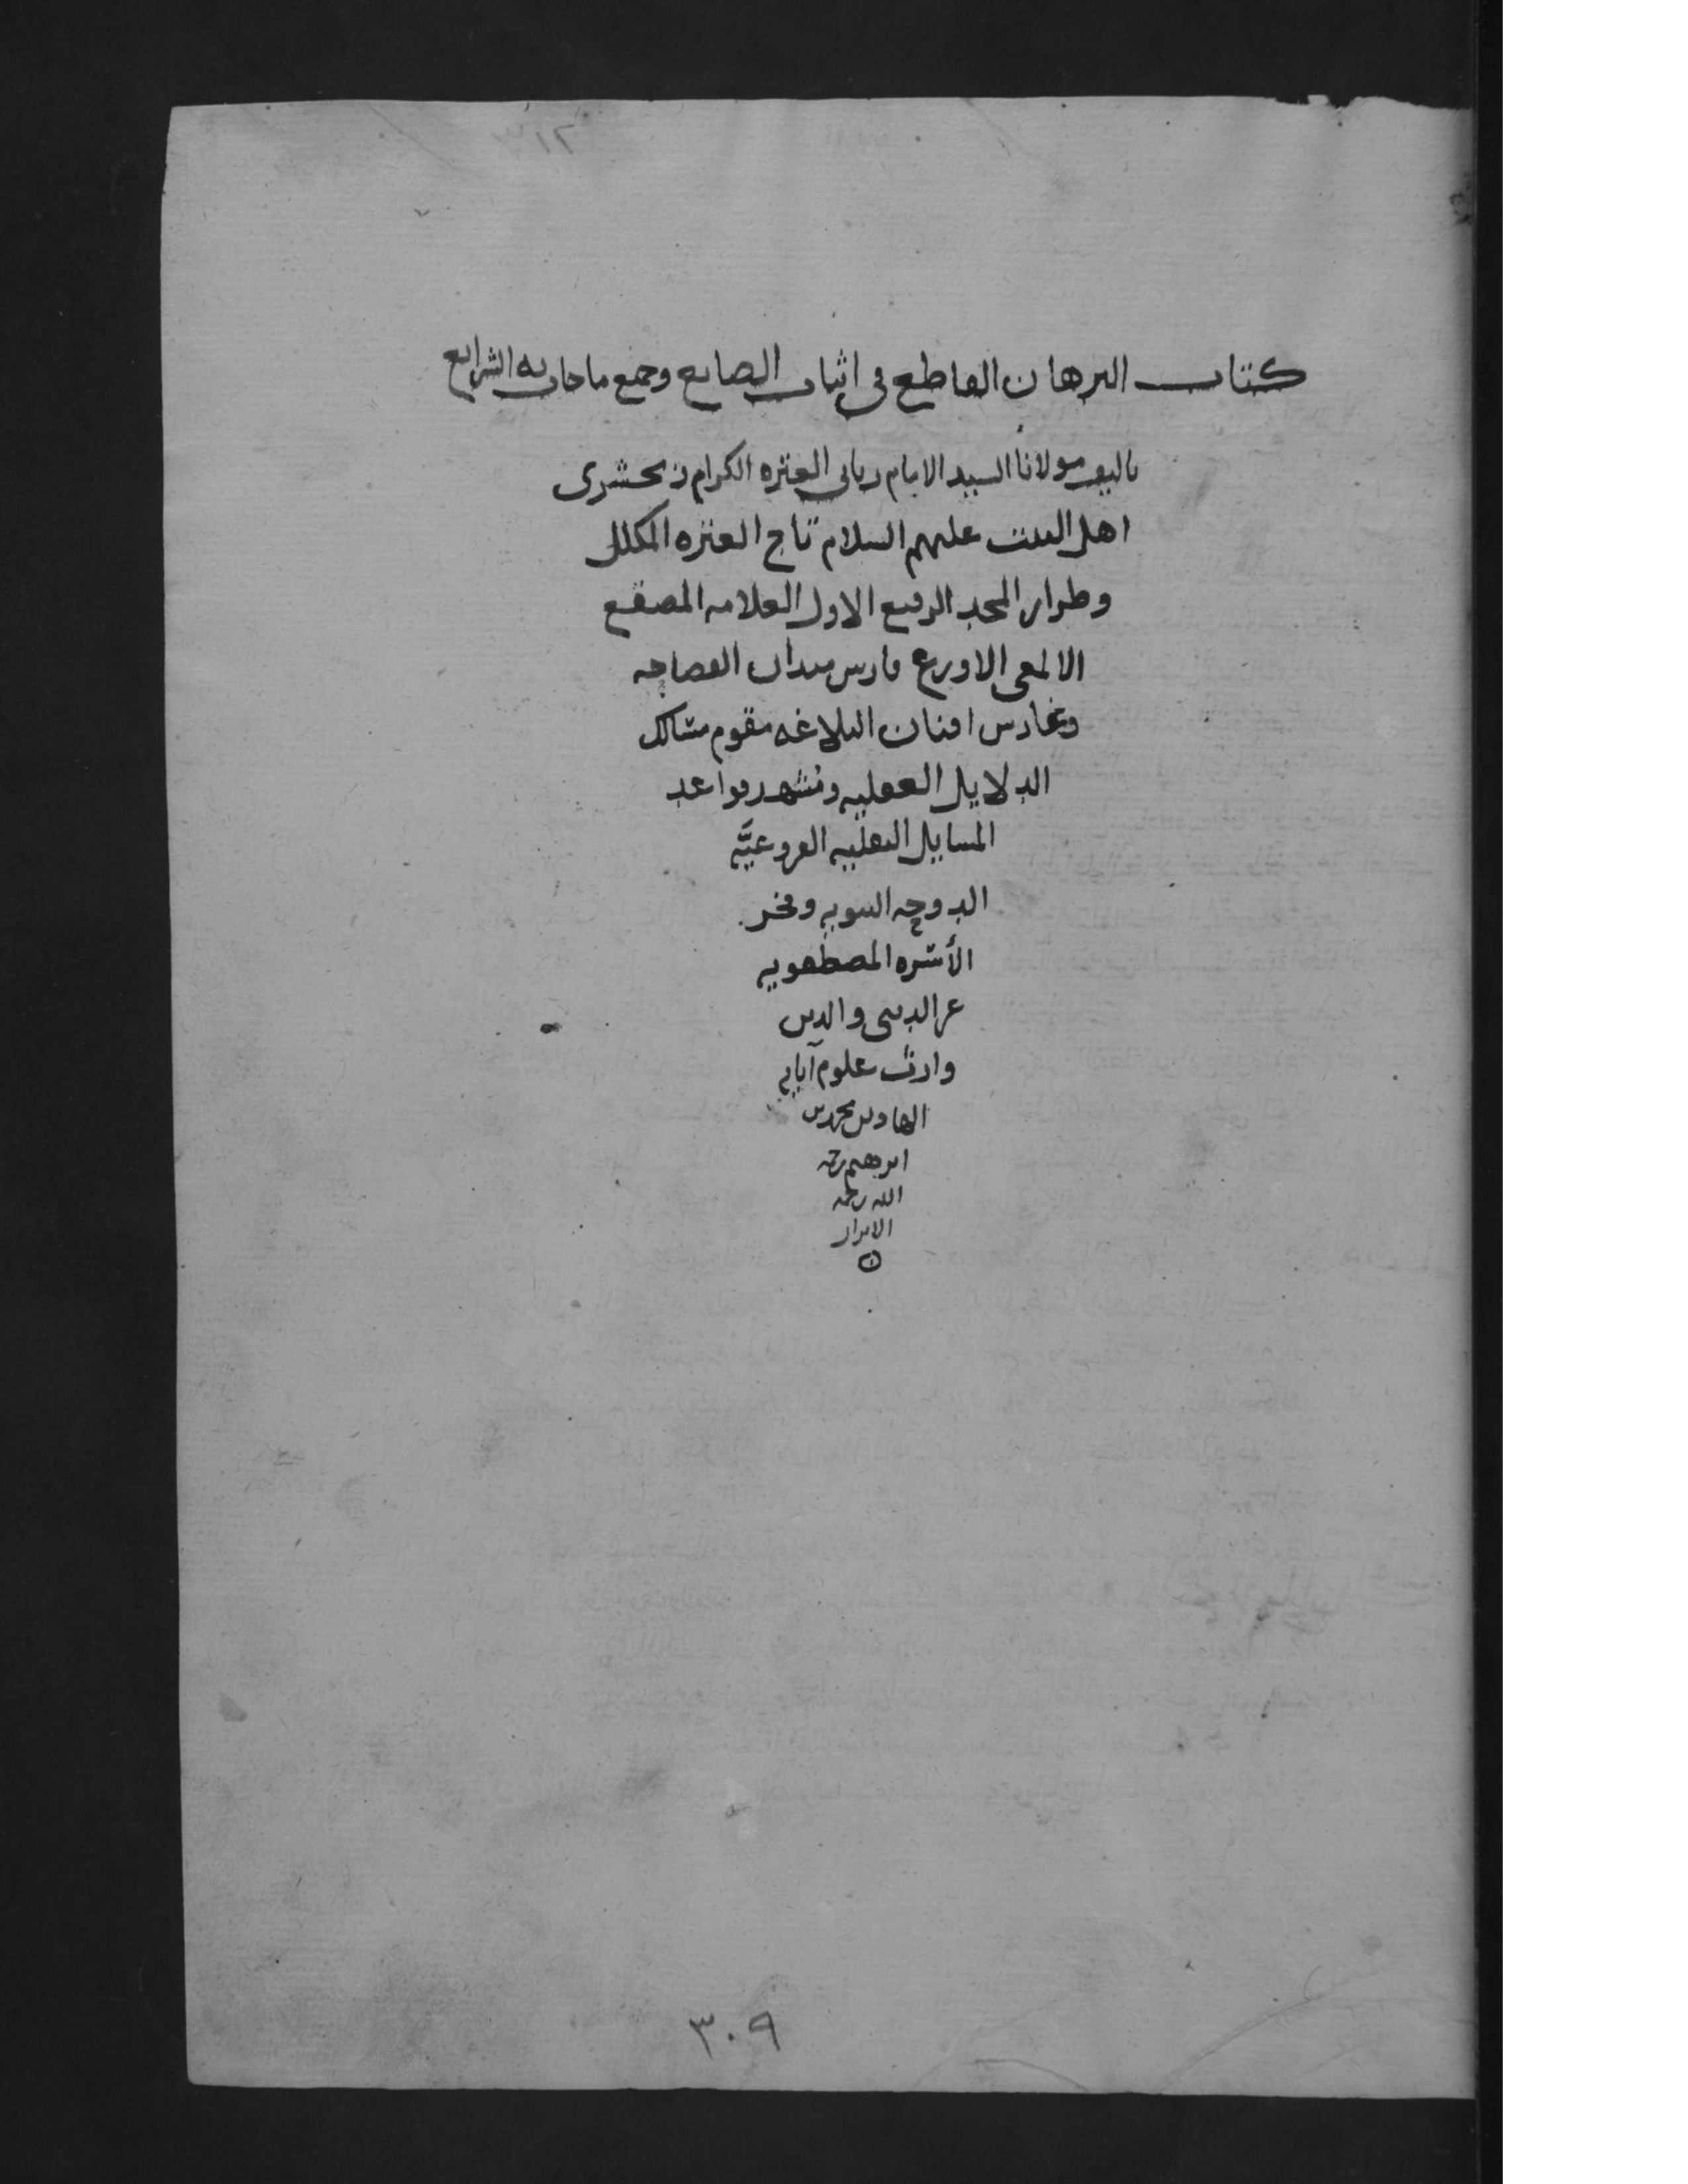 كتاب البرهان القاطع في اثبات الصانع وجميع ما جات به الشرايع
تاليف مولانا السيد الامام رباني العتره الكرام زمخشري
اهل البيت عليهم السلام تاج العتره المكلل
وطراز المجد الرفيع الاول العلامه المصقع
الالمعي الاورع فارس ميدان الفصاحه
وغارس افنان البلاغه مقوم
الدلايل العقليه قواعد
المسايل النقليه الفروعيَّه
الدوحه النبويه وفخر
الأسره المصطفويه
عز الدنيى والدين
وارث علوم آبايه
الهادين محمد بن
ابرهيم رحمه
الله رحمة
الابرار
٣٠٩